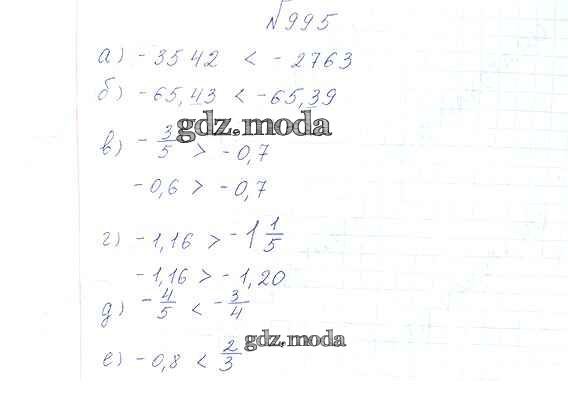 №995
а) - 3542 < - 2763
б) -65,43 < -65,39
gdz.moda
в) - 3/5 > -0,7
-0,6 > -0,7
г) -1,16 > -1 1/5
-1,16 > -1,20
д) - 4/5 < - 3/4
gdz.moda
е) -0,8 < 2/3